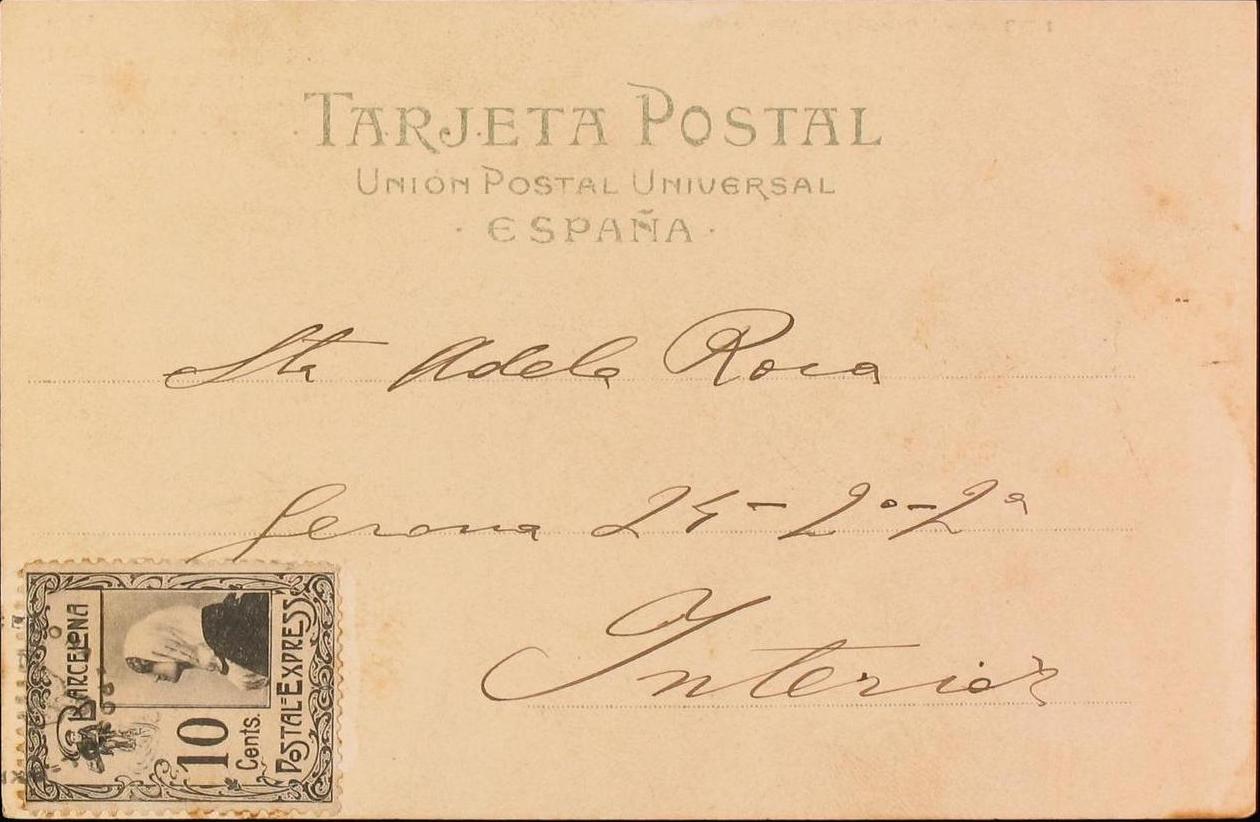 TARJETA POSTAL
UNIÓN POSTAL UNIVERSAL
· ESPAÑA ·
Sta Adela Roca
Gerona 24 - 2º - 2ª
Interior
BARCELONA
10
Cents.
POSTAL-EXPRESS